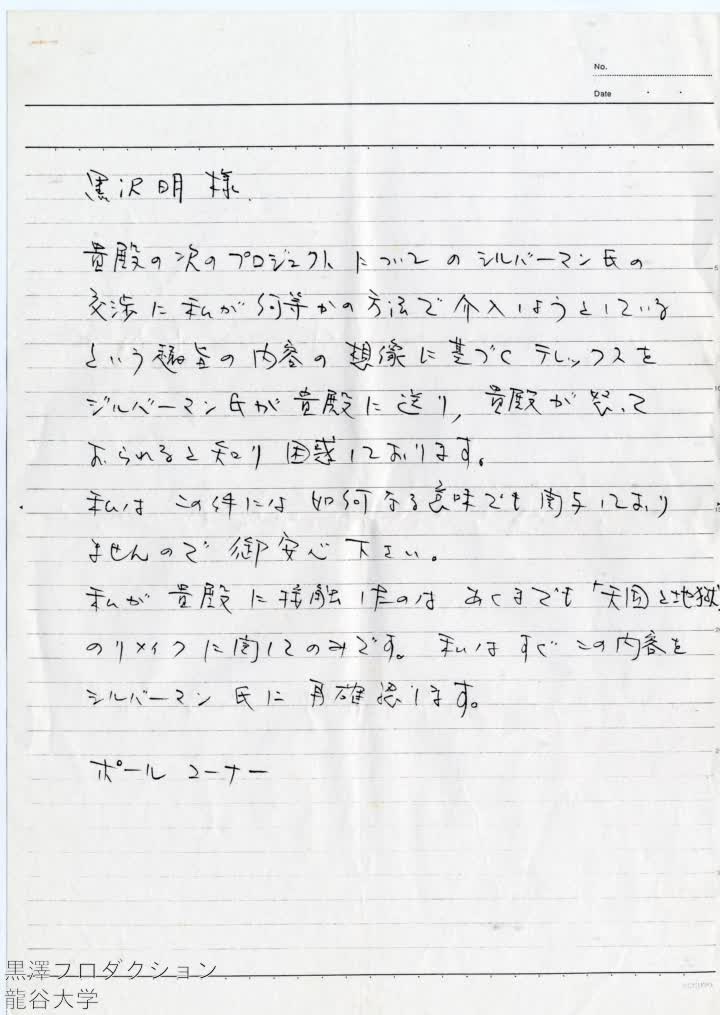 No.
Date
黒沢明様
貴殿の次のプロジェクトについてのシルバーマン氏の
交渉に私が何等かの方法で介入しようとしている
という趣旨の内容の想像に基づくテレックスを
シルバーマン氏が貴殿に送り,貴殿が怒って
おられると知り困惑しております。
私はこの件には如何なる意味でも関与しており
ませんので御安心下さい。
私が貴殿に接触したのはあくまでも「天国と地獄」
のリメイクに関してのみです。私はすぐこの内容を
シルバーマン氏に再確認します。
ポール コーナー
黒澤プロダクション
龍谷大学